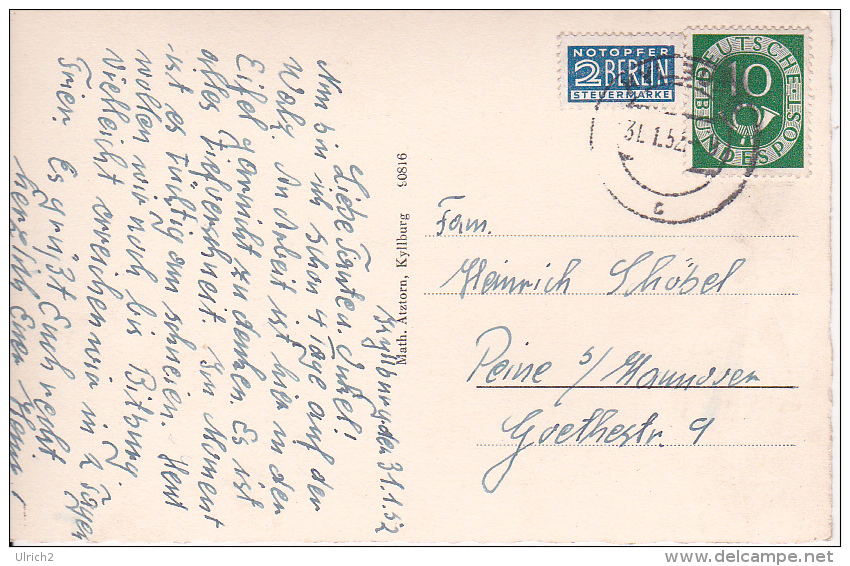 Kyllburg den 31.1.52
Liebe Tante u. Onkel!
Nun bin ich schon 4 Tage auf der
Walz. An Arbeit ist hier in der
Eifel garnicht zu denken. Es ist
alles tiefverschneit. Im Moment
ist es tüchtig am schneien. Heut
wollen wir noch bis Bitburg
vielleicht erreichen wir in 2 Tagen
Trier. Es grüßt Euch recht
herzlich Euer
Math. Atztorn, Kyllburg 90816
NOTOPFER
2 BERLIN
STEUERMARKE
DEUTSCHE BUNDESPOST
10
31.1.52
c
Fam.
Heinrich Schöbel
Peine s/Hannover
Goethestr. 9
Ulrich2
http://ulrich2.delcampe.net